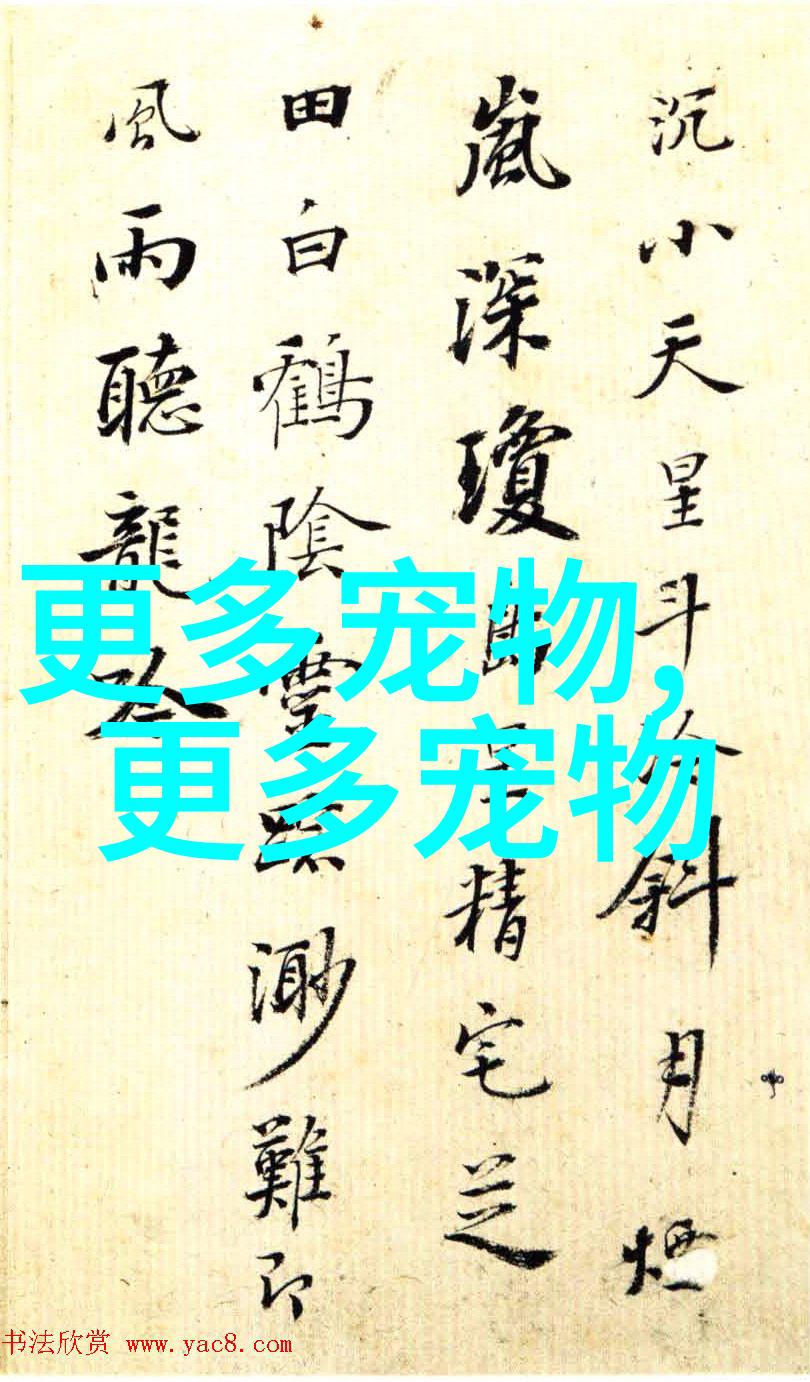 沉小天星斗冷斜月煙
嵐深瓊島精宅芝
田白鶴陰靈渺難即
風雨聽龍吟
更多宠物,
更多宠物
书法欣赏 www.yac8.com